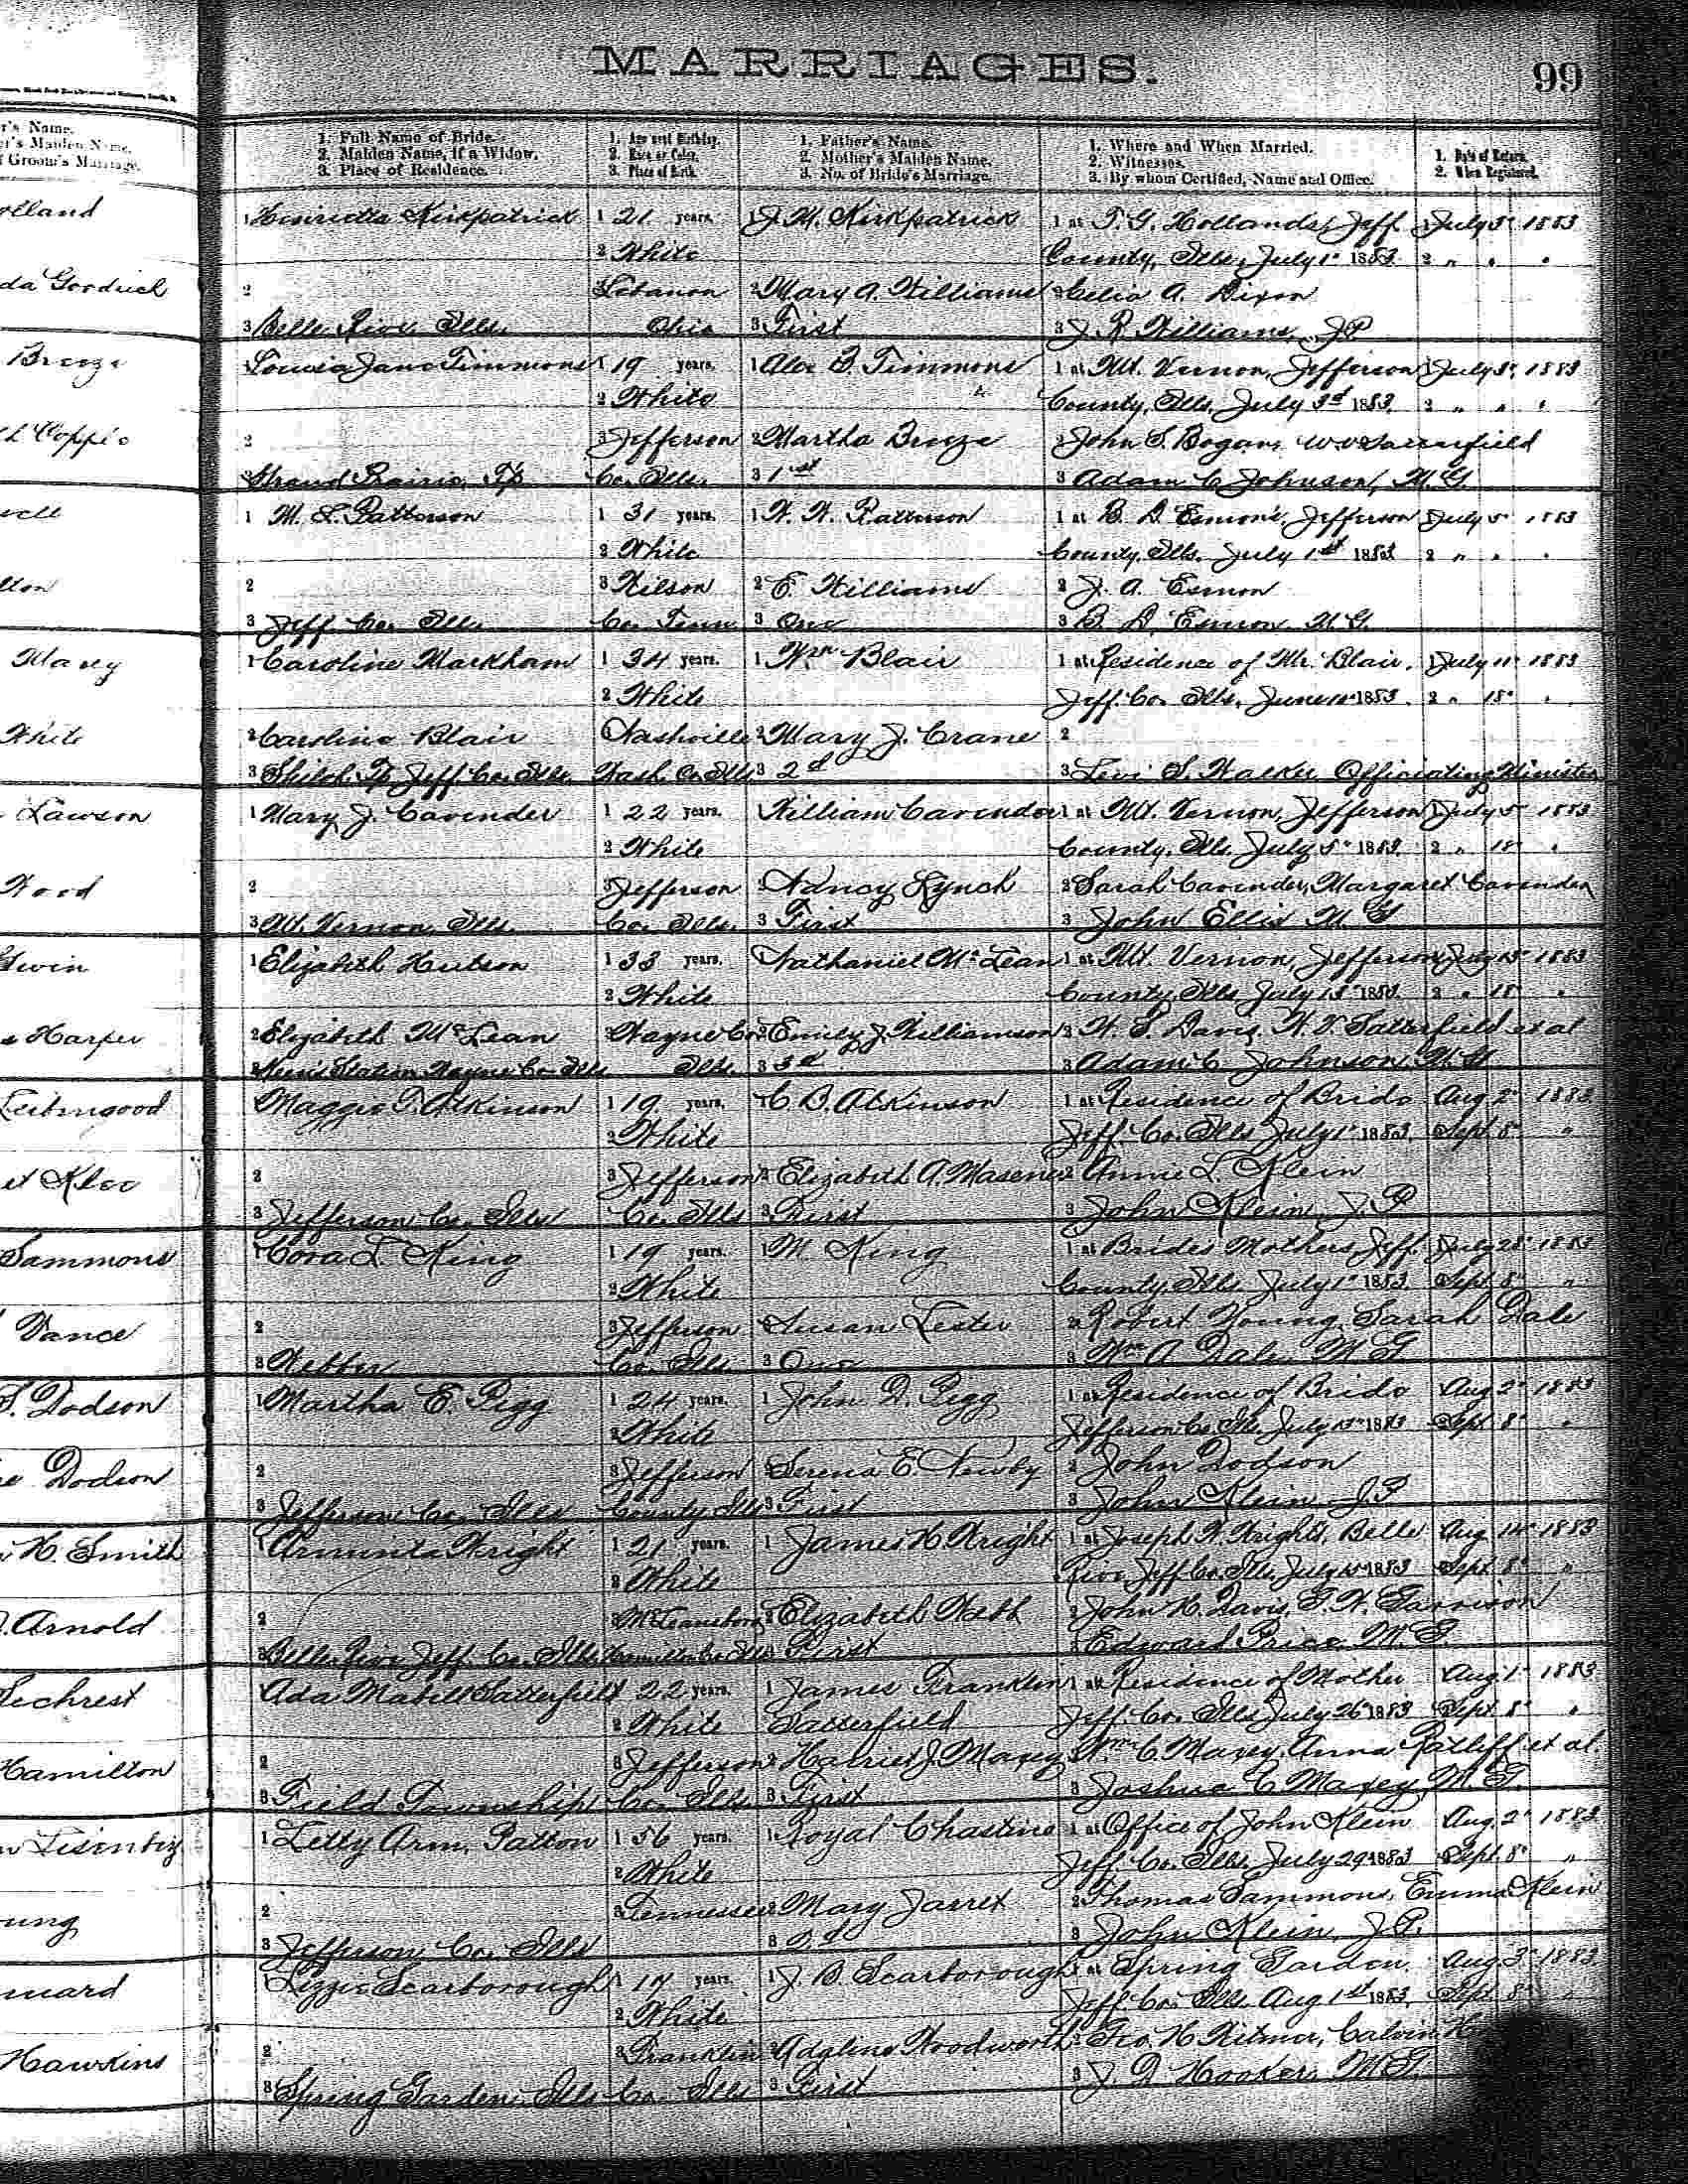 MARRIAGES.
99
r's Name.
r's Maiden Name.
f Groom's Marriage.
1. Full Name of Bride.
2. Maiden Name, If a Widow.
3. Place of Residence.
1. Age next Birthday.
2. Race or Color.
3. Place of Birth.
1. Father's Name.
2. Mother's Maiden Name.
3. No. of Bride's Marriage.
1. Where and When Married.
2. Witnesses.
3. By whom Certified, Name and Office.
1. Date of Return.
2. When Registered.
olland 1 Henrietta Kirkpatrick 1 21 years. 1 J. H. Kirkpatrick 1 at T. G. Hollands, Jeff. 1 July 3" 1883
2 White County, Ills. July 1" 1883 2 " " "
da Goodrich 2 3 Lebanon 2 Mary A. Williams 2 Celia A. Dixon
3 Belle Rive Ills. Ohio 3 First 3 J. R. Williams, J.P.
Breeze 1 Louisa Jane Timmons 1 19 years. 1 Alex B. Timmons 1 at Mt. Vernon, Jefferson 1 July 3" 1883
2 White County, Ills. July 3d 1883 2 " " "
2 3 Jefferson 2 Martha Breeze 2 John S. Bogan,
3 Grand Prairie, Tp Co. Ills. 3 1st 3 Adam C. Johnson, M.G.
well 1 M. L. Patterson 1 31 years. 1 W. W. Patterson 1 at B. D. Esmon's, Jefferson 1 July 5" 1883
2 White County, Ills. July 1st 1883 2 " " "
lton 2 3 Wilson 2 E. Williams 2 J. A. Esmon
3 Jeff. Co. Ills. Co. Tenn 3 One 3 B. D. Esmon, M.G.
Maxey 1 Caroline Markham 1 34 years. 1 Wm Blair 1 at Residence of Mr. Blair, 1 July 11" 1883
2 White Jeff. Co. Ills. June 1883 2 " 18" "
White 2 Caroline Blair Nashville 2 Mary J. Crane 2
3 Shiloh Tp Jeff Co. Ills. Wash. Co. Ills 3 2d 3 Levi S. Walker Officiating Minister
Lawson 1 Mary J. Cavender 1 22 years. William Cavender 1 at Mt. Vernon, Jefferson 1 July 5" 1883
2 White County, Ills. July 5" 1883 2 " 18" "
Wood 2 3 Jefferson 2 Nancy Lynch 2 Sarah Cavender, Margaret Cavender
3 Mt. Vernon, Ills. Co. Ills. 3 First 3 John Ellis M.G.
1 Elizabeth Hutson 1 33 years. Nathaniel McLean 1 at Mt. Vernon, Jefferson 1 July 13" 1883
2 White County, Ills. July 13" 1883 2 " 18" "
Harper 2 Elizabeth McLean 3 Wayne Co. 2 Emily J. Williamson 2 W. S. Davis, W. V. Satterfield et al
Station Wayne Co. Ills. Ills. 3 3d 3 Adam C. Johnson M.G.
Maggie T. Atkinson 1 19 years. 1 C. B. Atkinson 1 at Residence of Bride Aug 2" 1883
2 White Jeff. Co. Ills July 1" 1883 Sept. 8" "
2 3 Jefferson 2 Elizabeth A. 2 Annie L. Klein
3 Jefferson Co. Ills Co. Ills 3 First 3 John Klein, J.P
Sammons 1 Cora L. King 1 19 years. 1 M. King 1 at Brides Mothers, Jeff. July 28" 1883
2 White County, Ills. July 1" 1883 Sept. 8" "
Vance 2 3 Jefferson 2 Susan Lester 2 Robert Young, Sarah Dale
3 Webber Co. Ills 3 One 3 Wm A. Dale, M.G.
Dodson 1 Martha E. Pigg 1 24 years. 1 John D. Pigg 1 at Residence of Bride Aug 2" 1883
2 White Jefferson Co. Ills. July 13" 1883 Sept. 8" "
Dodson 2 3 Jefferson 2 Serena E. Newby 2 John Dodson
3 Jefferson Co. Ills County, Ills 3 First 3 John Klein, J.P
H. Smith 1 Arminta Wright 1 21 years. 1 James H. Wright 1 at Joseph W. Wrights, Belle Aug 14" 1883
2 White Rive Jeff Co. Ills. July 15" 1883 Sept. 8" "
Arnold 2 3 McLeansboro 2 Elizabeth Webb 2 John H. Davis, G. W. Garrison
3 Belle Rive Jeff. Co. Ills Hamilton Co. Ills 3 First 3 Edward Price M.G.
Sechrest 1 Ada Mabell Satterfield 22 years. 1 James Franklin 1 at Residence of Mother Aug 1" 1883
2 White Satterfield Jeff. Co. Ills July 26" 1883 Sept. 8" "
Hamilton 2 3 Jefferson 2 Harriet J. Maxey Wm C. Maxey, Anna Ratliff et al.
3 Field Township Co. Ills. 3 First 3 Joshua C. Maxey, M.G.
1 Letty Ann, Patton 1 56 years. 1 Royal Chastine 1 at Office of John Klein Aug. 2" 1883
2 White Jeff. Co. Ills. July 29" 1883 Sept. 8" "
ung 2 3 Tennessee 2 Mary Jarret 2 Thomas Sammons, Emma Klein
3 Jefferson Co. Ills 3 2d 3 John Klein, J.P.
1 Lizzie Scarborough 1 17 years. 1 J. B. Scarborough 1 at Spring Garden Aug 3" 1883
2 White Jeff. Co. Ills. Aug 1st 1883 Sept. 8"
Hawkins 2 3 Franklin 2 Adaline Woodworth 2 Geo. H. Calvin
3 Spring Garden, Ills Co. Ills 3 First 3 J. D. Hooker, M.G.